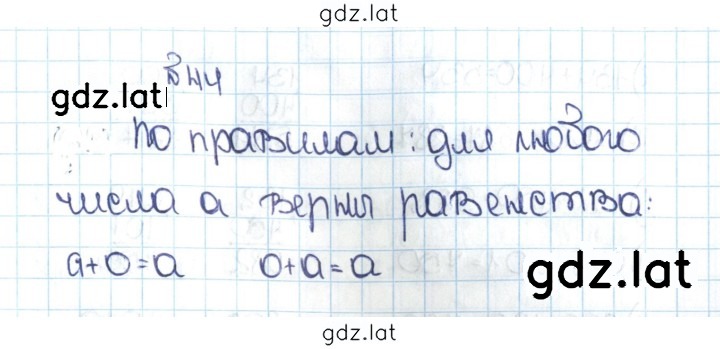 gdz.lat
В 44
gdz.lat
По правилам: для любого
числа a верны равенства:
a+0=a 0+a=a
gdz.lat
gdz.lat